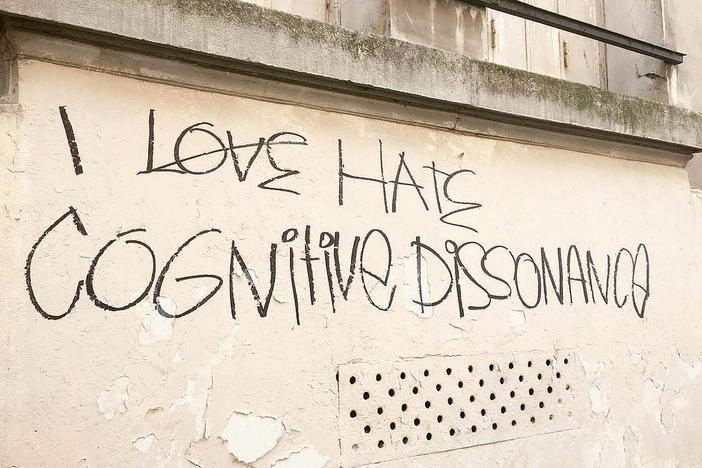 I LOVE HATE
COGNiTiVE DiSSONANCE